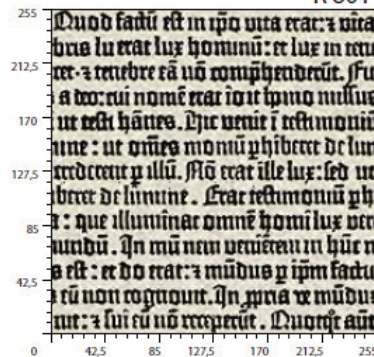 255
212,5
170
127,5
85
42,5
0
Quod factū est in ip̄o uita erat: ⁊ uita
erat lux hominū: et lux in tene
cet· ⁊ tenebre eā nō comp̄henderūt. Fu
a deo: cui nomē erat io missus
ut testi hānes. Hic uenit ī testimoniū
mine : ut om̄es moniū phiberet de lum
crederent p illū. Nō erat ille lux: sed ut
iberet de lumine . Erat testimoniū ph
a : que illuminat omnē homi lux ver
undū. In mū nem uenientem in hūc m
s est: et do erat: ⁊ mūdus p ipm factu
eū non cognouit. In ppria re mūdus
nit: ⁊ sui eū nō receperūt . Quotqt aūt
42,5 85 127,5 170 212,5 255